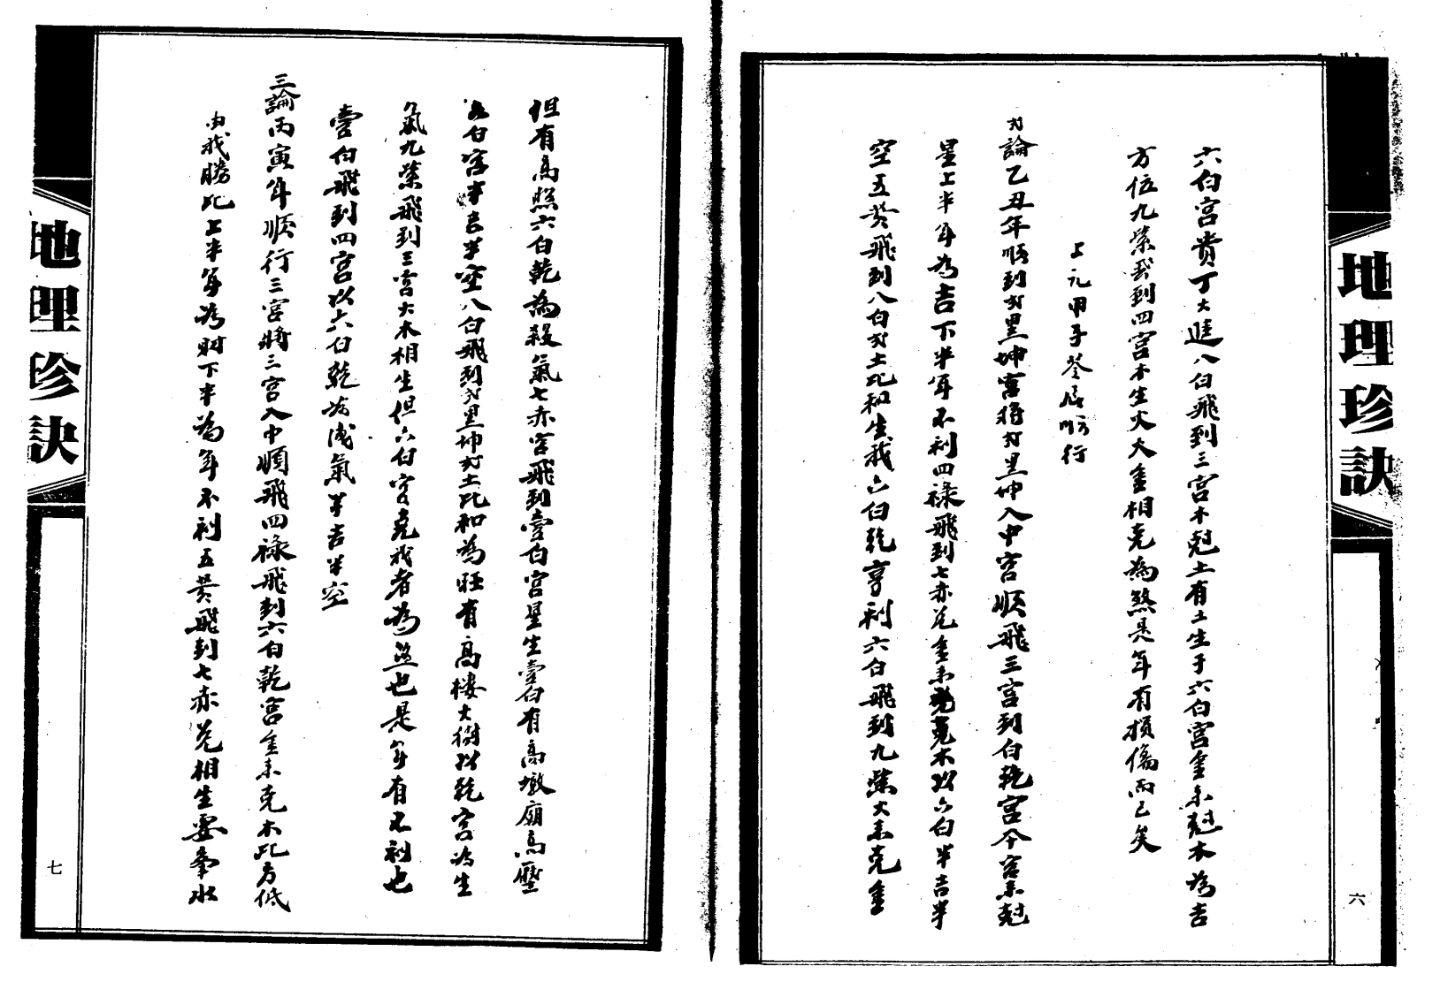 地理珍訣
六
六白宮貴丁大進八白飛到三宮木尅土有土生于六白宮金來尅木為吉
方位九紫到四宮木生火火金相克為煞是年有損傷而已矣
上元甲子登居順行
弍論乙丑年順到弍黑坤宮將弍黑坤入中宮順飛三宮到白乾宮今宮來尅
星上半年為吉下半年不利四祿飛到七赤兌金來克木以六白半吉半
空五黃飛到八白弍土比和生我六白乾亨利六白飛到九紫火來克金
但有高照六白乾為殺氣七赤宮飛到壹白宮星生壹白有高墩廟高壓
六白宮半吉半空八白飛到弍黑坤弍土比和為旺有高樓大樹以乾宮為生
氣九紫飛到三宮火木相生但六白宮克我者為煞也是年有不利也
壹白飛到四宮以六白乾為洩氣半吉半空
三論丙寅年順行三宮將三宮入中順飛四祿飛到六白乾宮金來克木此方低
由我勝比上半年為財下半為年不利五黃飛到七赤兌相生要奉水
地理珍訣
七